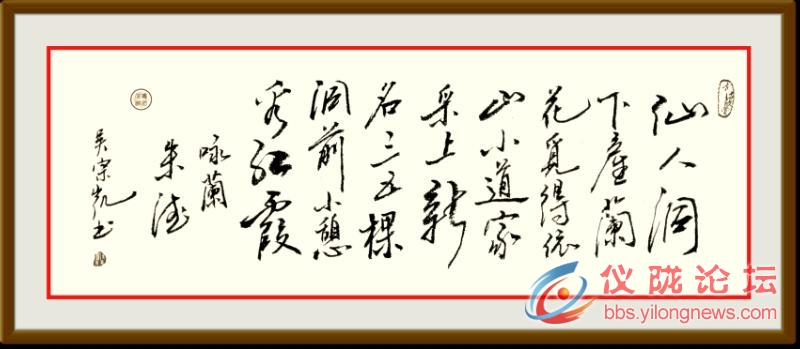 仙人洞
下産蘭
花覓得依
山小道家
采上新
名三五棵
洞前小憩
看红霞
咏蘭
朱德
吴宗凯书
仪陇论坛
bbs.yilongnews.com